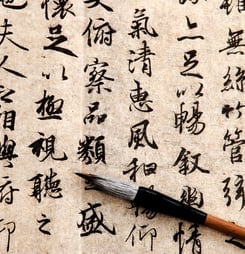 無絲竹管弦
亦足以暢叙幽情
氣清惠風和暢仰
大俯察品類之盛
懷足以極視聽之
也夫人之相與俯仰